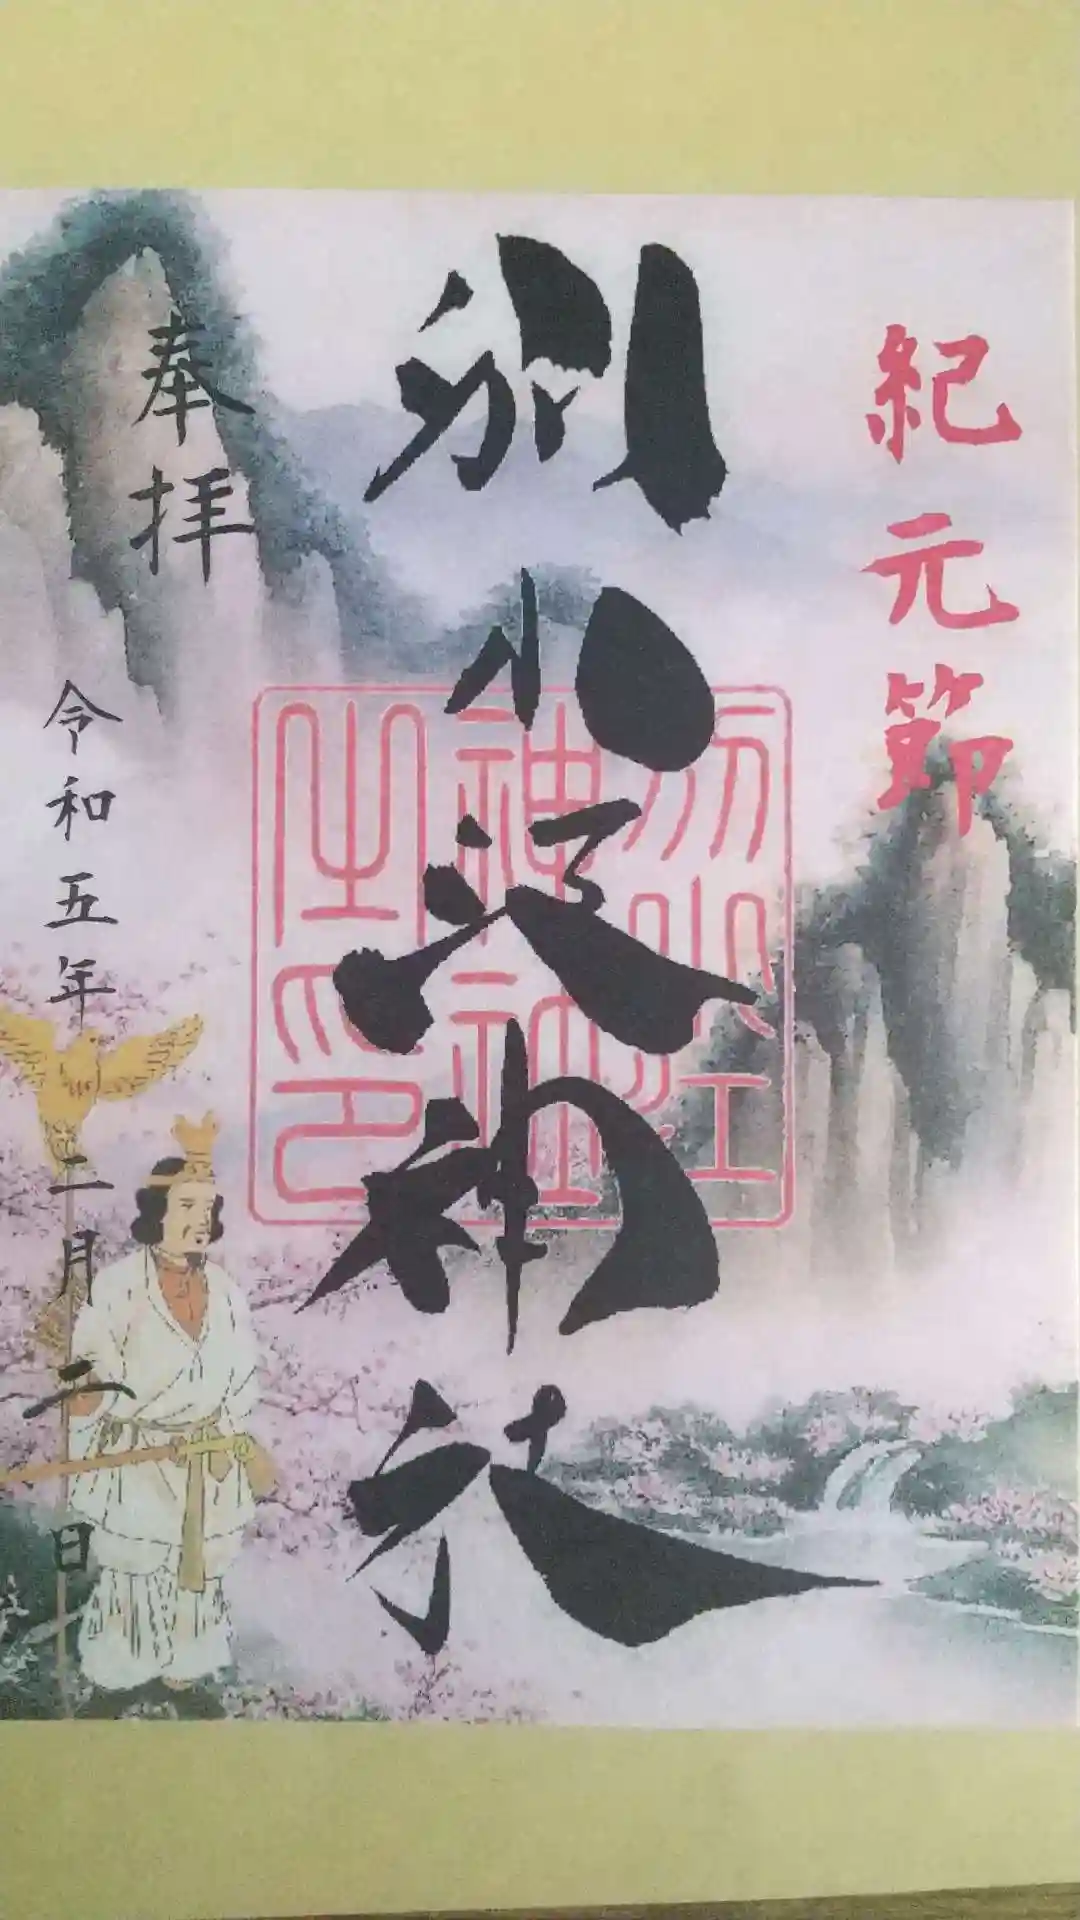 紀元節
別小江神社
別小江
神社
之印
奉拝
令和五年二月二日